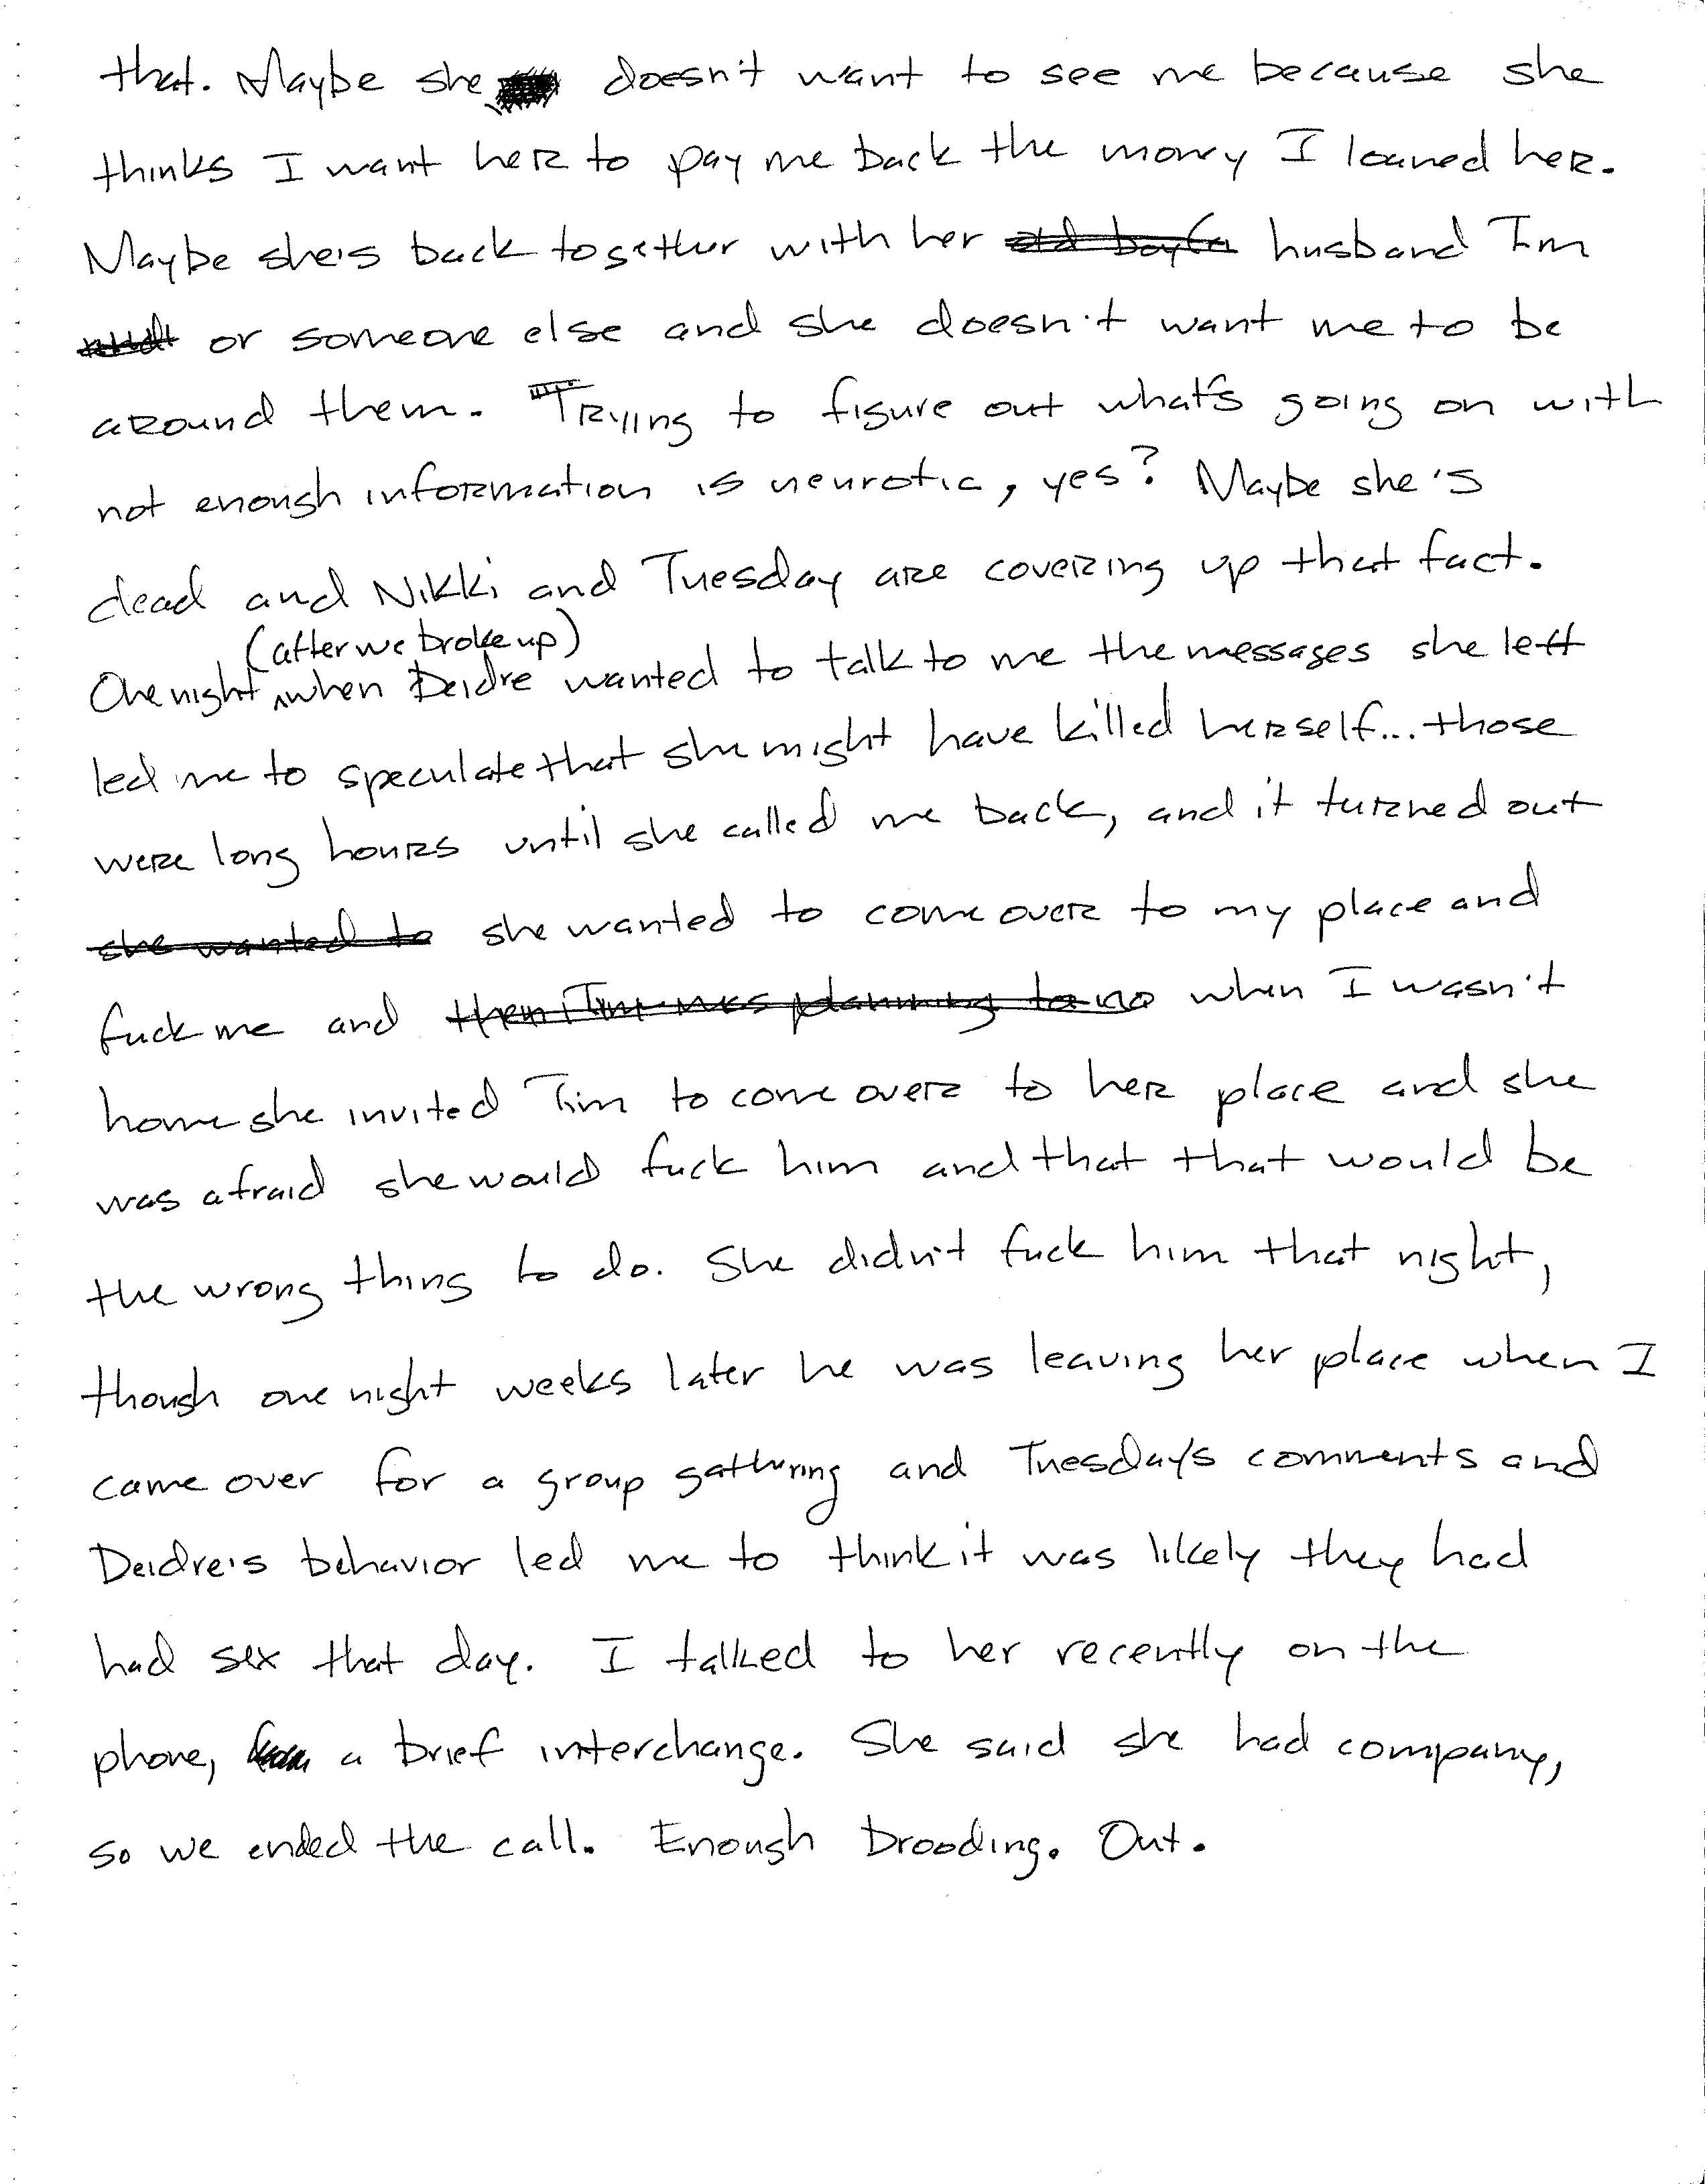 that. Maybe she doesn't want to see me because she
thinks I want her to pay me back the money I loaned her.
Maybe she's back together with her husband Tim
or someone else and she doesn't want me to be
around them. Trying to figure out what's going on with
not enough information is neurotic, yes? Maybe she's
dead and Nikki and Tuesday are covering up that fact.
(after we broke up)
One night when Deidre wanted to talk to me the messages she left
led me to speculate that she might have killed herself... those
were long hours until she called me back, and it turned out
she wanted to she wanted to come over to my place and
fuck me and when I wasn't
home she invited Tim to come over to her place and she
was afraid she would fuck him and that that would be
the wrong thing to do. She didn't fuck him that night,
though one night weeks later he was leaving her place when I
came over for a group gathering and Tuesday's comments and
Deidre's behavior led me to think it was likely they had
had sex that day. I talked to her recently on the
phone, a brief interchange. She said she had company,
so we ended the call. Enough brooding. Out.